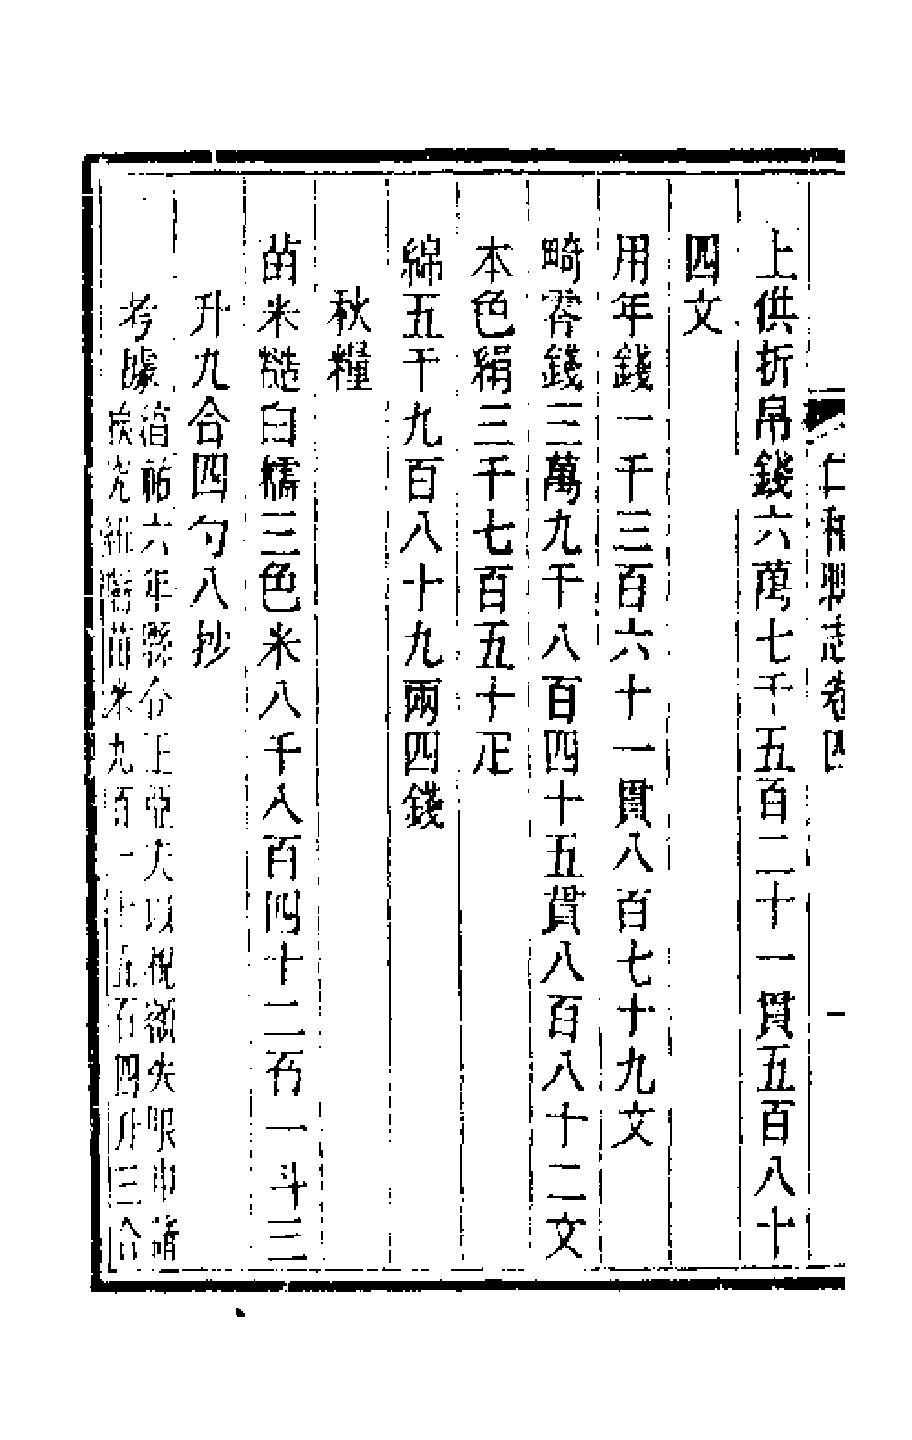 仁和縣志卷四
上供折帛錢六萬七千五百二十一貫五百八十
四文
用年錢一千三百六十一貫八百七十九文
畸零錢三萬九千八百四十五貫八百八十二文
本色絹三千七百五十疋
綿五千九百八十九兩四錢
秋糧
苗米糙白糯三色米八千八百四十二石一斗三
升九合四勺八抄
考據
六年縣令王亞夫以稅額失眼申請
舊苗米九百一十五石四升三合